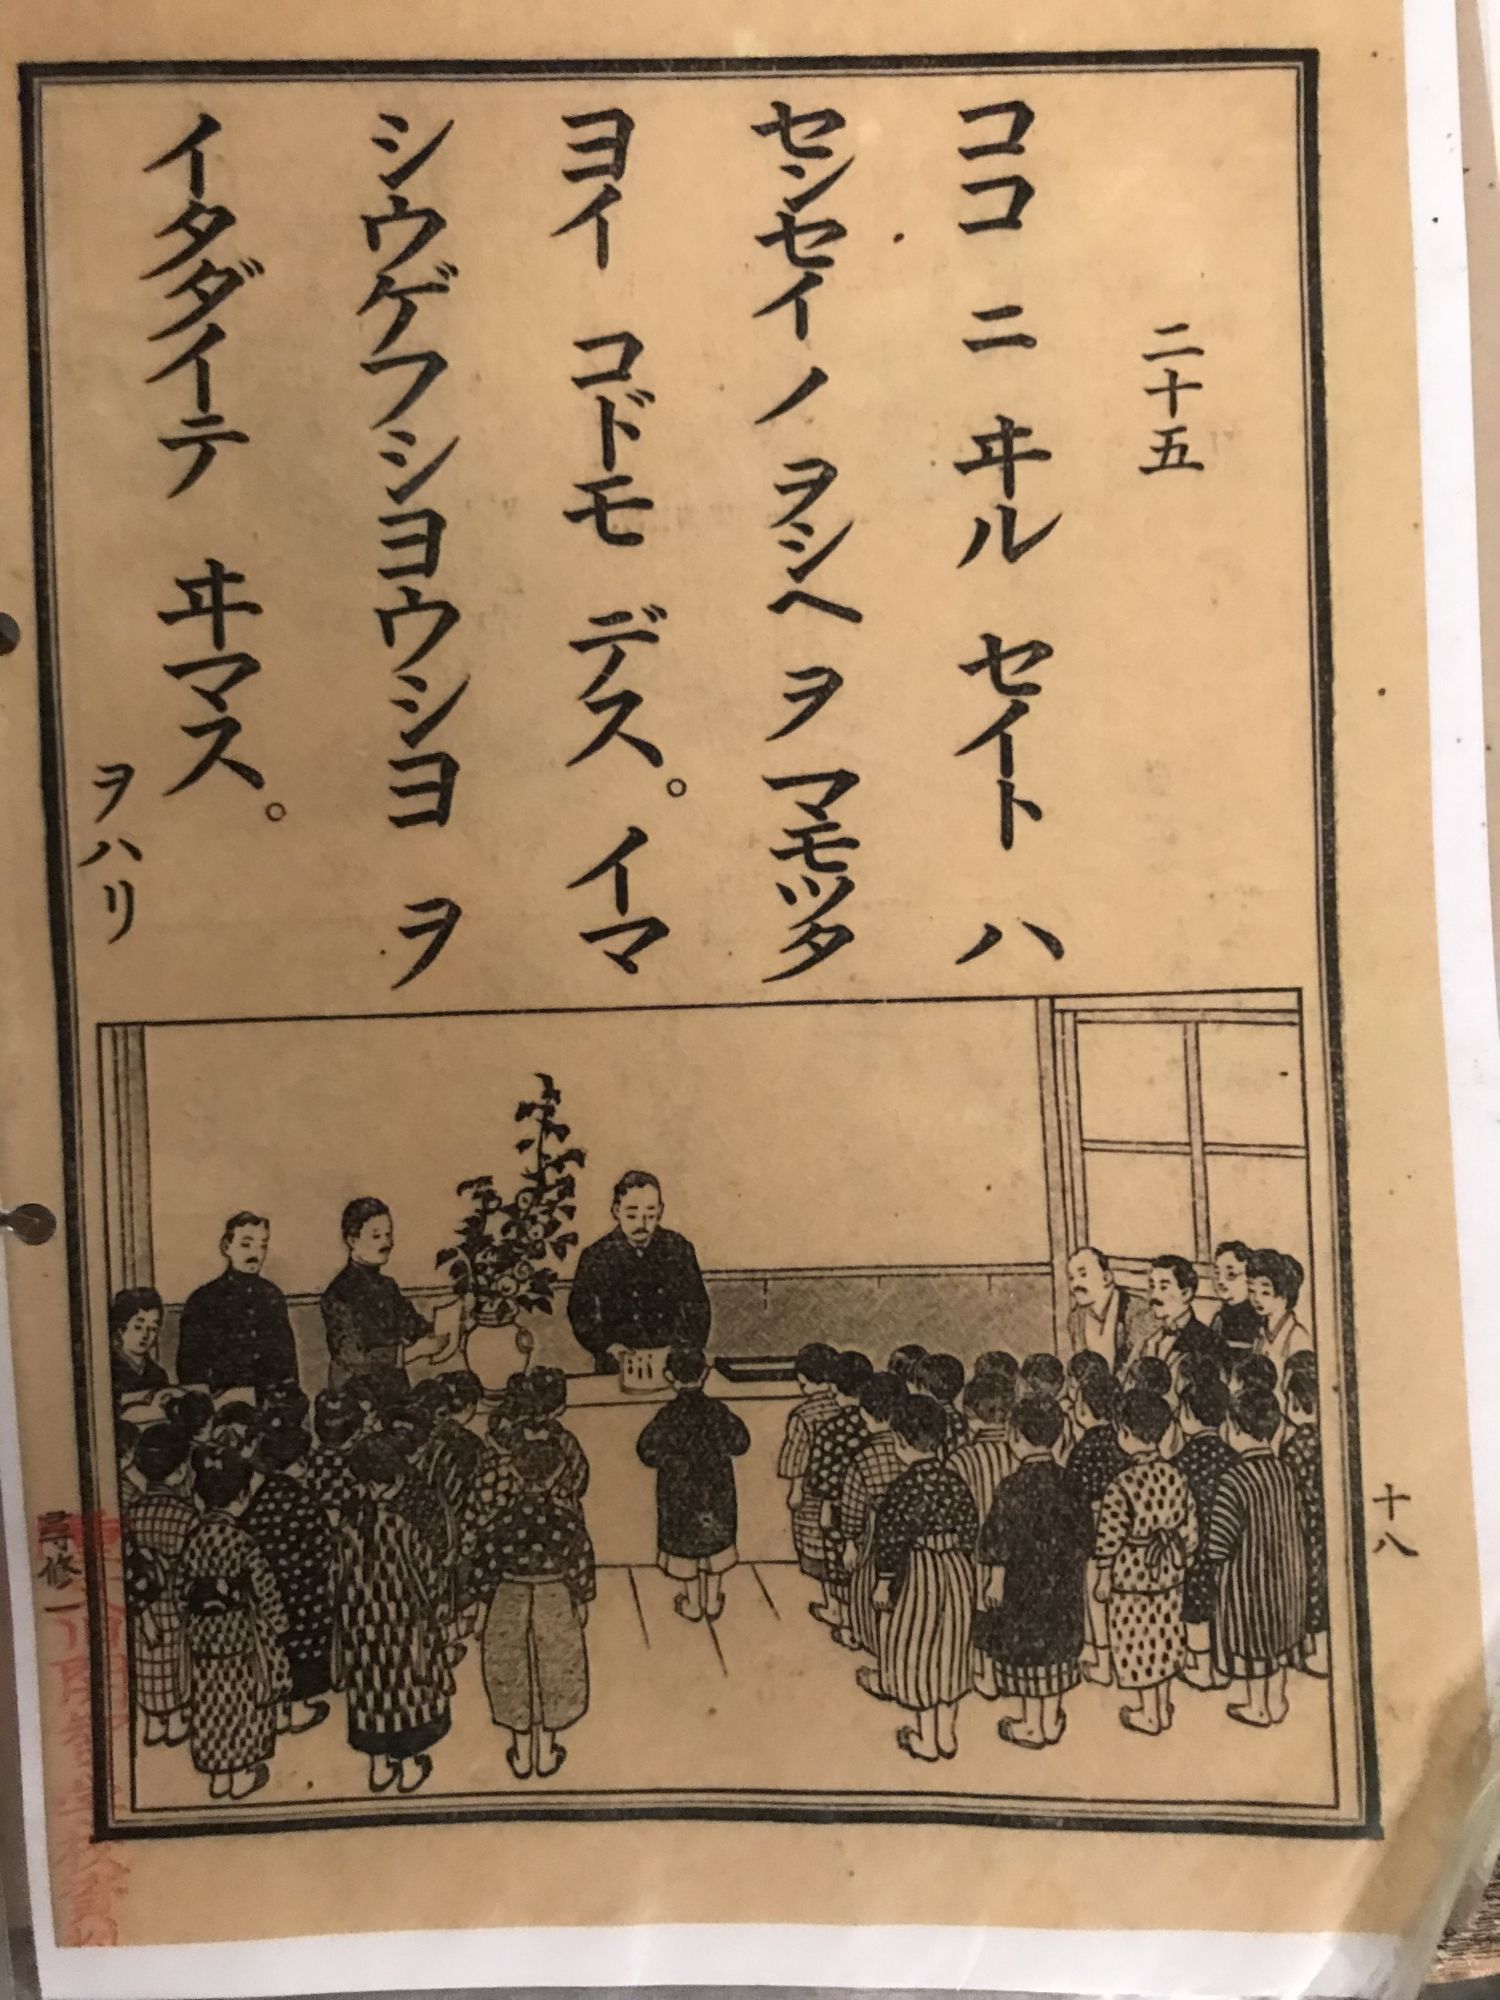 二十五
ココ ニ ヰル セイト ハ
センセイ ノ ヲシヘ ヲ マモツタ
ヨイ コドモ デス。イマ
シウゲフシヨウシヨ ヲ
イタダイテ ヰマス。
ヲハリ
十八
修一